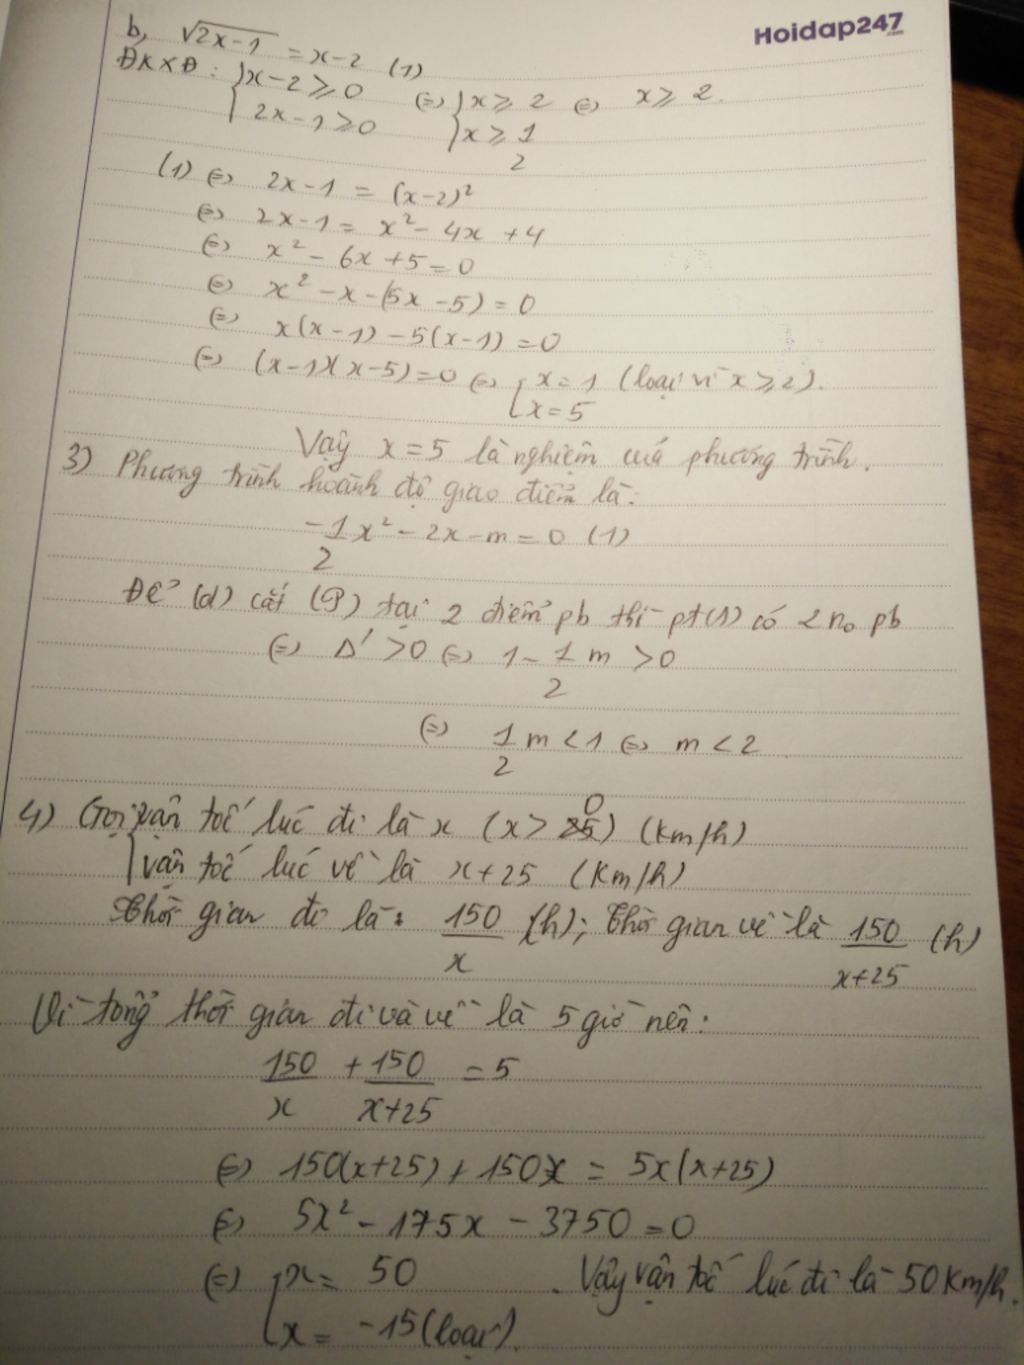 Hoidap247.com
b, √2x-1 = x-2 (1)
ĐKXĐ: { x-2 ≥ 0 (=) { x ≥ 2 (=) x ≥ 2.
2x-1 ≥ 0 x ≥ 1/2
(1) (=) 2x-1 = (x-2)²
(=) 2x-1 = x² - 4x + 4
(=) x² - 6x + 5 = 0
(=) x² - x - (5x - 5) = 0
(=) x(x-1) - 5(x-1) = 0
(=) (x-1)(x-5) = 0 (=) [ x = 1 (loại vì x ≥ 2).
x = 5
Vậy x = 5 là nghiệm của phương trình.
3) Phương trình hoành độ giao điểm là:
-1/2 x² - 2x - m = 0 (1)
Để (d) cắt (P) tại 2 điểm pb thì pt(1) có 2 no pb
(=) Δ' > 0 (=) 1 - 1/2 m > 0
(=) 1/2 m < 1 (=) m < 2
4) Gọi vận tốc lúc đi là x (x > 0) (km/h)
vận tốc lúc về là x+25 (km/h)
Thời gian đi là: 150/x (h); Thời gian về là 150/x+25 (h)
Vì tổng thời gian đi và về là 5 giờ nên:
150/x + 150/x+25 = 5
(=) 150(x+25) + 150x = 5x(x+25)
(=) 5x² - 175x - 3750 = 0
(=) [ x = 50 . Vậy vận tốc lúc đi là 50 km/h.
x = -15 (loại).